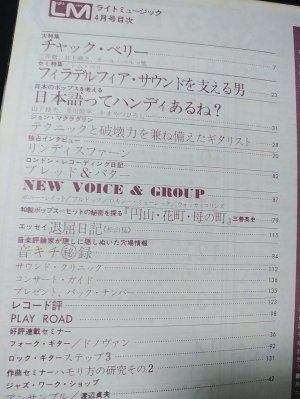 LM ライトミュージック
4月号目次
大特集
チャック・ベリー
7
セミ特集
フィラデルフィア・サウンドを支える男
23
日本のポップスを考える
日本語ってハンディあるね?
31
ジョン・マクラグリン
テクニックと破壊力を兼ね備えたギタリスト
28
独占インタビュー
リンディスファーン
20
ロンドン・レコーディング日記
ブレッド&バター
82
NEW VOICE & GROUP
87
和製ポップス・ヒットの秘密を探る『円山・花町・母の町』三善英史
79
エッセイ 退屈日記
84
音楽評論家が隠しに隠しぬいた穴場情報
音キチ㊙録
114
サウンド・クリニック
112
コンサート・ガイド
116
プレゼント、バック・ナンバー
135
レコード評
123
PLAY ROAD
98
好評連載セミナー
フォーク・ギター/ドノヴァン
36
ロック・ギター ステップ3
92
作曲セミナー ハモリ方の研究その2
131
ジャズ・ワーク・ショップ
アンサンブル/渡辺貞夫
42